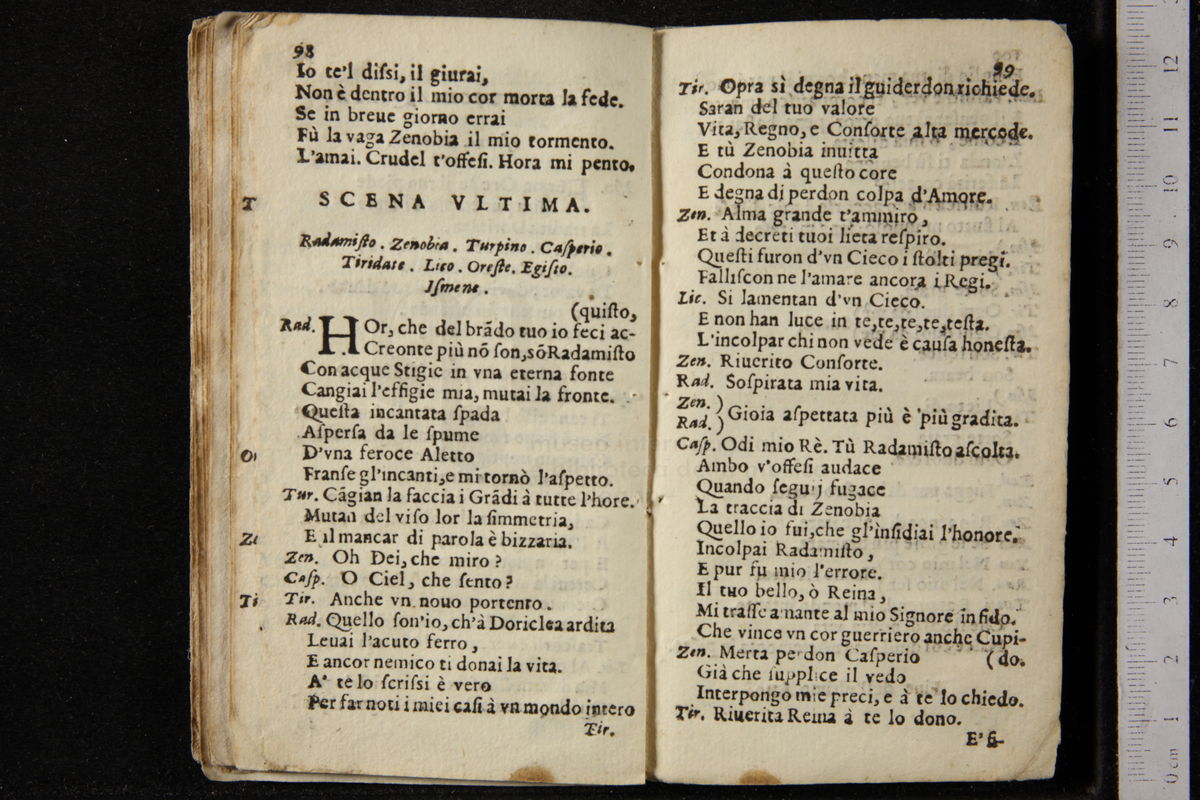 98
Io te'l dissi, il giurai,
Non è dentro il mio cor morta la fede.
Se in breue giorno errai
Fù la vaga Zenobia il mio tormento.
L'amai. Crudel t'offesi. Hora mi pento.
T
SCENA VLTIMA.
Radamisto. Zenobia. Turpino. Casperio.
Tiridate. Lico. Oreste. Egisio.
Ismene.
(quisto,
Rad. HOr, che del brãdo tuo io feci ac-
Creonte più nõ son, sõ Radamisto
Con acque Stigie in vna eterna fonte
Cangiai l'effigie mia, mutai la fronte.
Questa incantata spada
Aspersa da le spume
D'vna feroce Aletto
Franse gl'incanti, e mi tornò l'aspetto.
Tur. Cãgian la faccia i Grãdi à tutte l'hore.
Mutan del viso lor la simmetria,
E il mancar di parola è bizzaria.
Zen. Oh Dei, che miro?
Casp. O Ciel, che sento?
Ti
Tir. Anche vn nouo portento.
Rad. Quello son'io, ch'à Doriclea ardita
Leuai l'acuto ferro,
E ancor nemico ti donai la vita.
A' te lo scrissi è vero
Per far noti i miei casi à vn mondo intero
Tir.
99
Tir. Opra sì degna il guiderdon richiede.
Saran del tuo valore
Vita, Regno, e Consorte alta mercede.
E tù Zenobia inuitta
Condona à questo core
E degna di perdon colpa d'Amore.
Zen. Alma grande t'ammiro,
Et à decreti tuoi lieta respiro.
Questi furon d'vn Cieco i stolti pregi.
Falliscon ne l'amare ancora i Regi.
Lic. Si lamentan d'vn Cieco.
E non han luce in te, te, te, te, testa.
L'incolpar chi non vede è causa honesta.
Zen. Riuerito Consorte.
Rad. Sospirata mia vita.
Zen. )
Rad. ) Gioia aspettata più è più gradita.
Casp. Odi mio Rè. Tù Radamisto ascolta.
Ambo v'offesi audace
Quando seguij fugace
La traccia di Zenobia
Quello io fui, che gl'insidiai l'honore.
Incolpai Radamisto,
E pur fu mio l'errore.
Il tuo bello, ò Reina,
Mi trasse amante al mio Signore infido.
Che vince vn cor guerriero anche Cupi-
Zen. Merta perdon Casperio (do.
Già che supplice il vedo
Interpongo mie preci, e à te lo chiedo.
Tir. Riuerita Reina à te lo dono.
E' si-